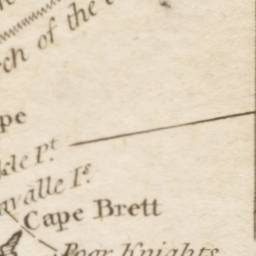 ch of the
pe
kle Pt.
avalle Is.
Cape Brett
Poor Knights